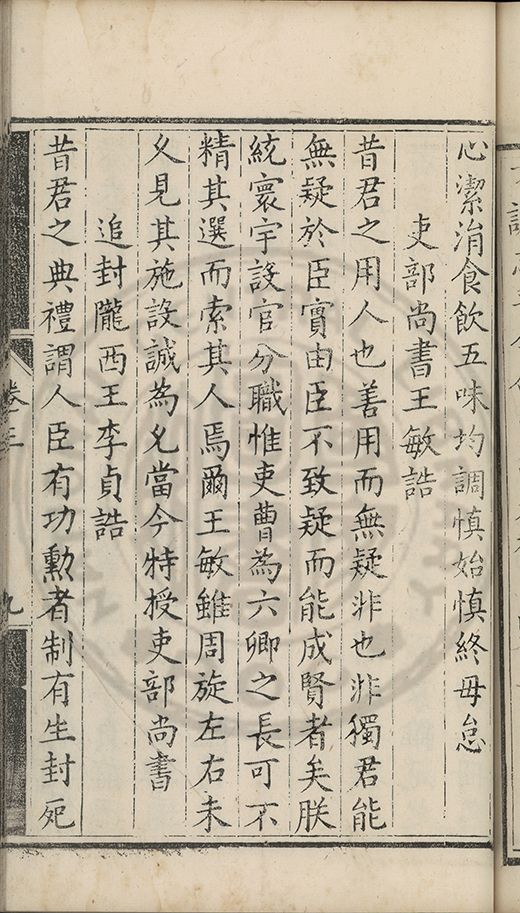 心潔涓食飲五味均調慎始慎終毋怠
吏部尚書王敏誥
昔君之用人也善用而無疑非也非獨君能
無疑於臣實由臣不致疑而能成賢者矣朕
統寰宇設官分職惟吏曹為六卿之長可不
精其選而索其人焉爾王敏雖周旋左右未
久見其施設誠為久當今特授吏部尚書
追封隴西王李貞誥
昔君之典禮謂人臣有功勳者制有生封死
卷三
九